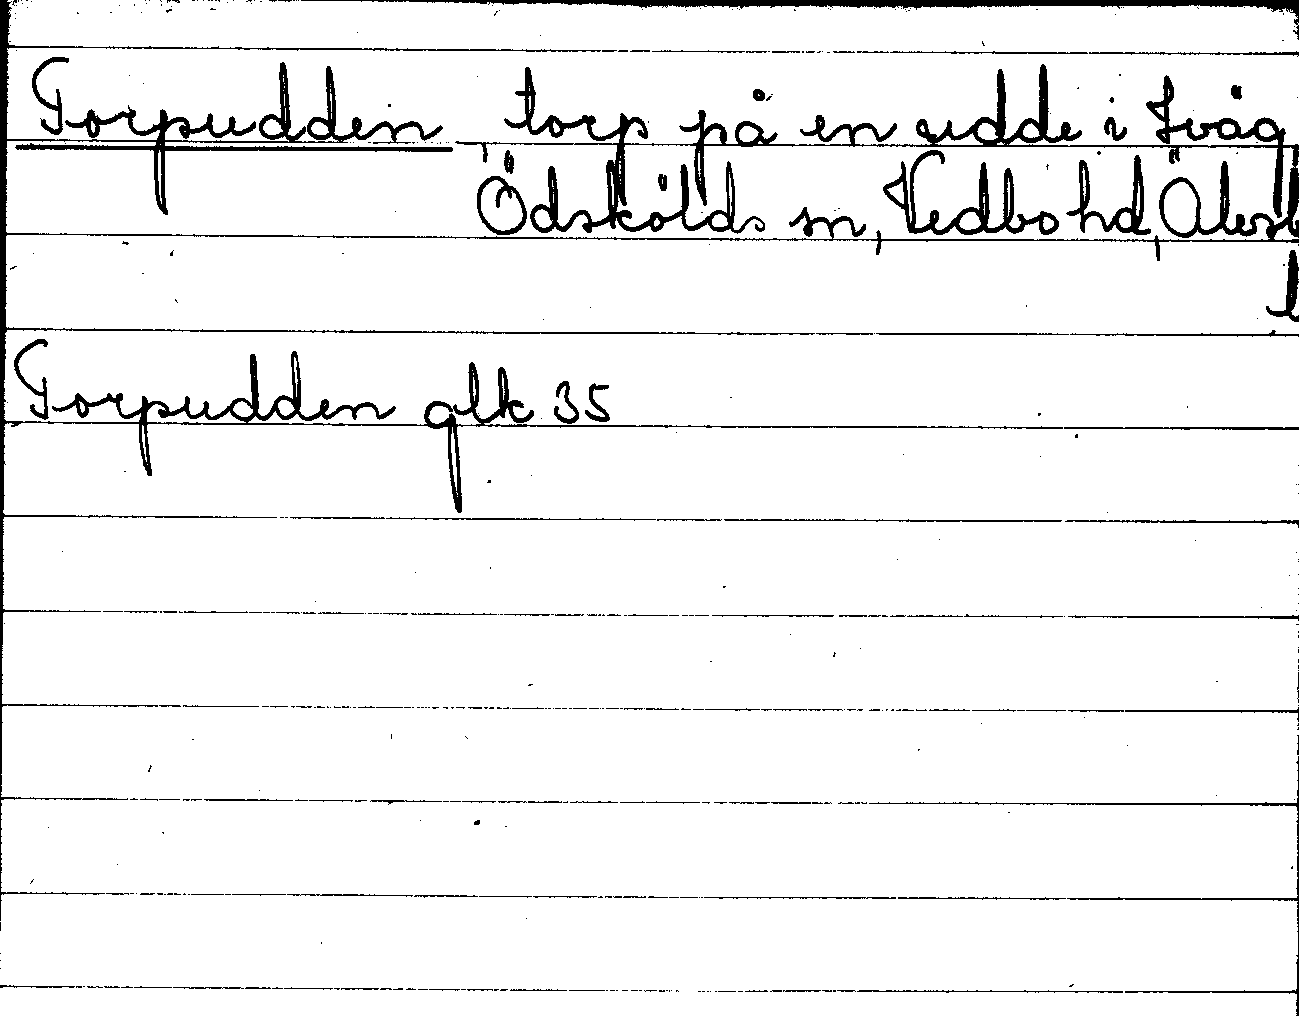 Torpudden torp på en udde i Iväg,
Ödskölds sn, Vedbo hd, Älvsb
l
Torpudden glk 35